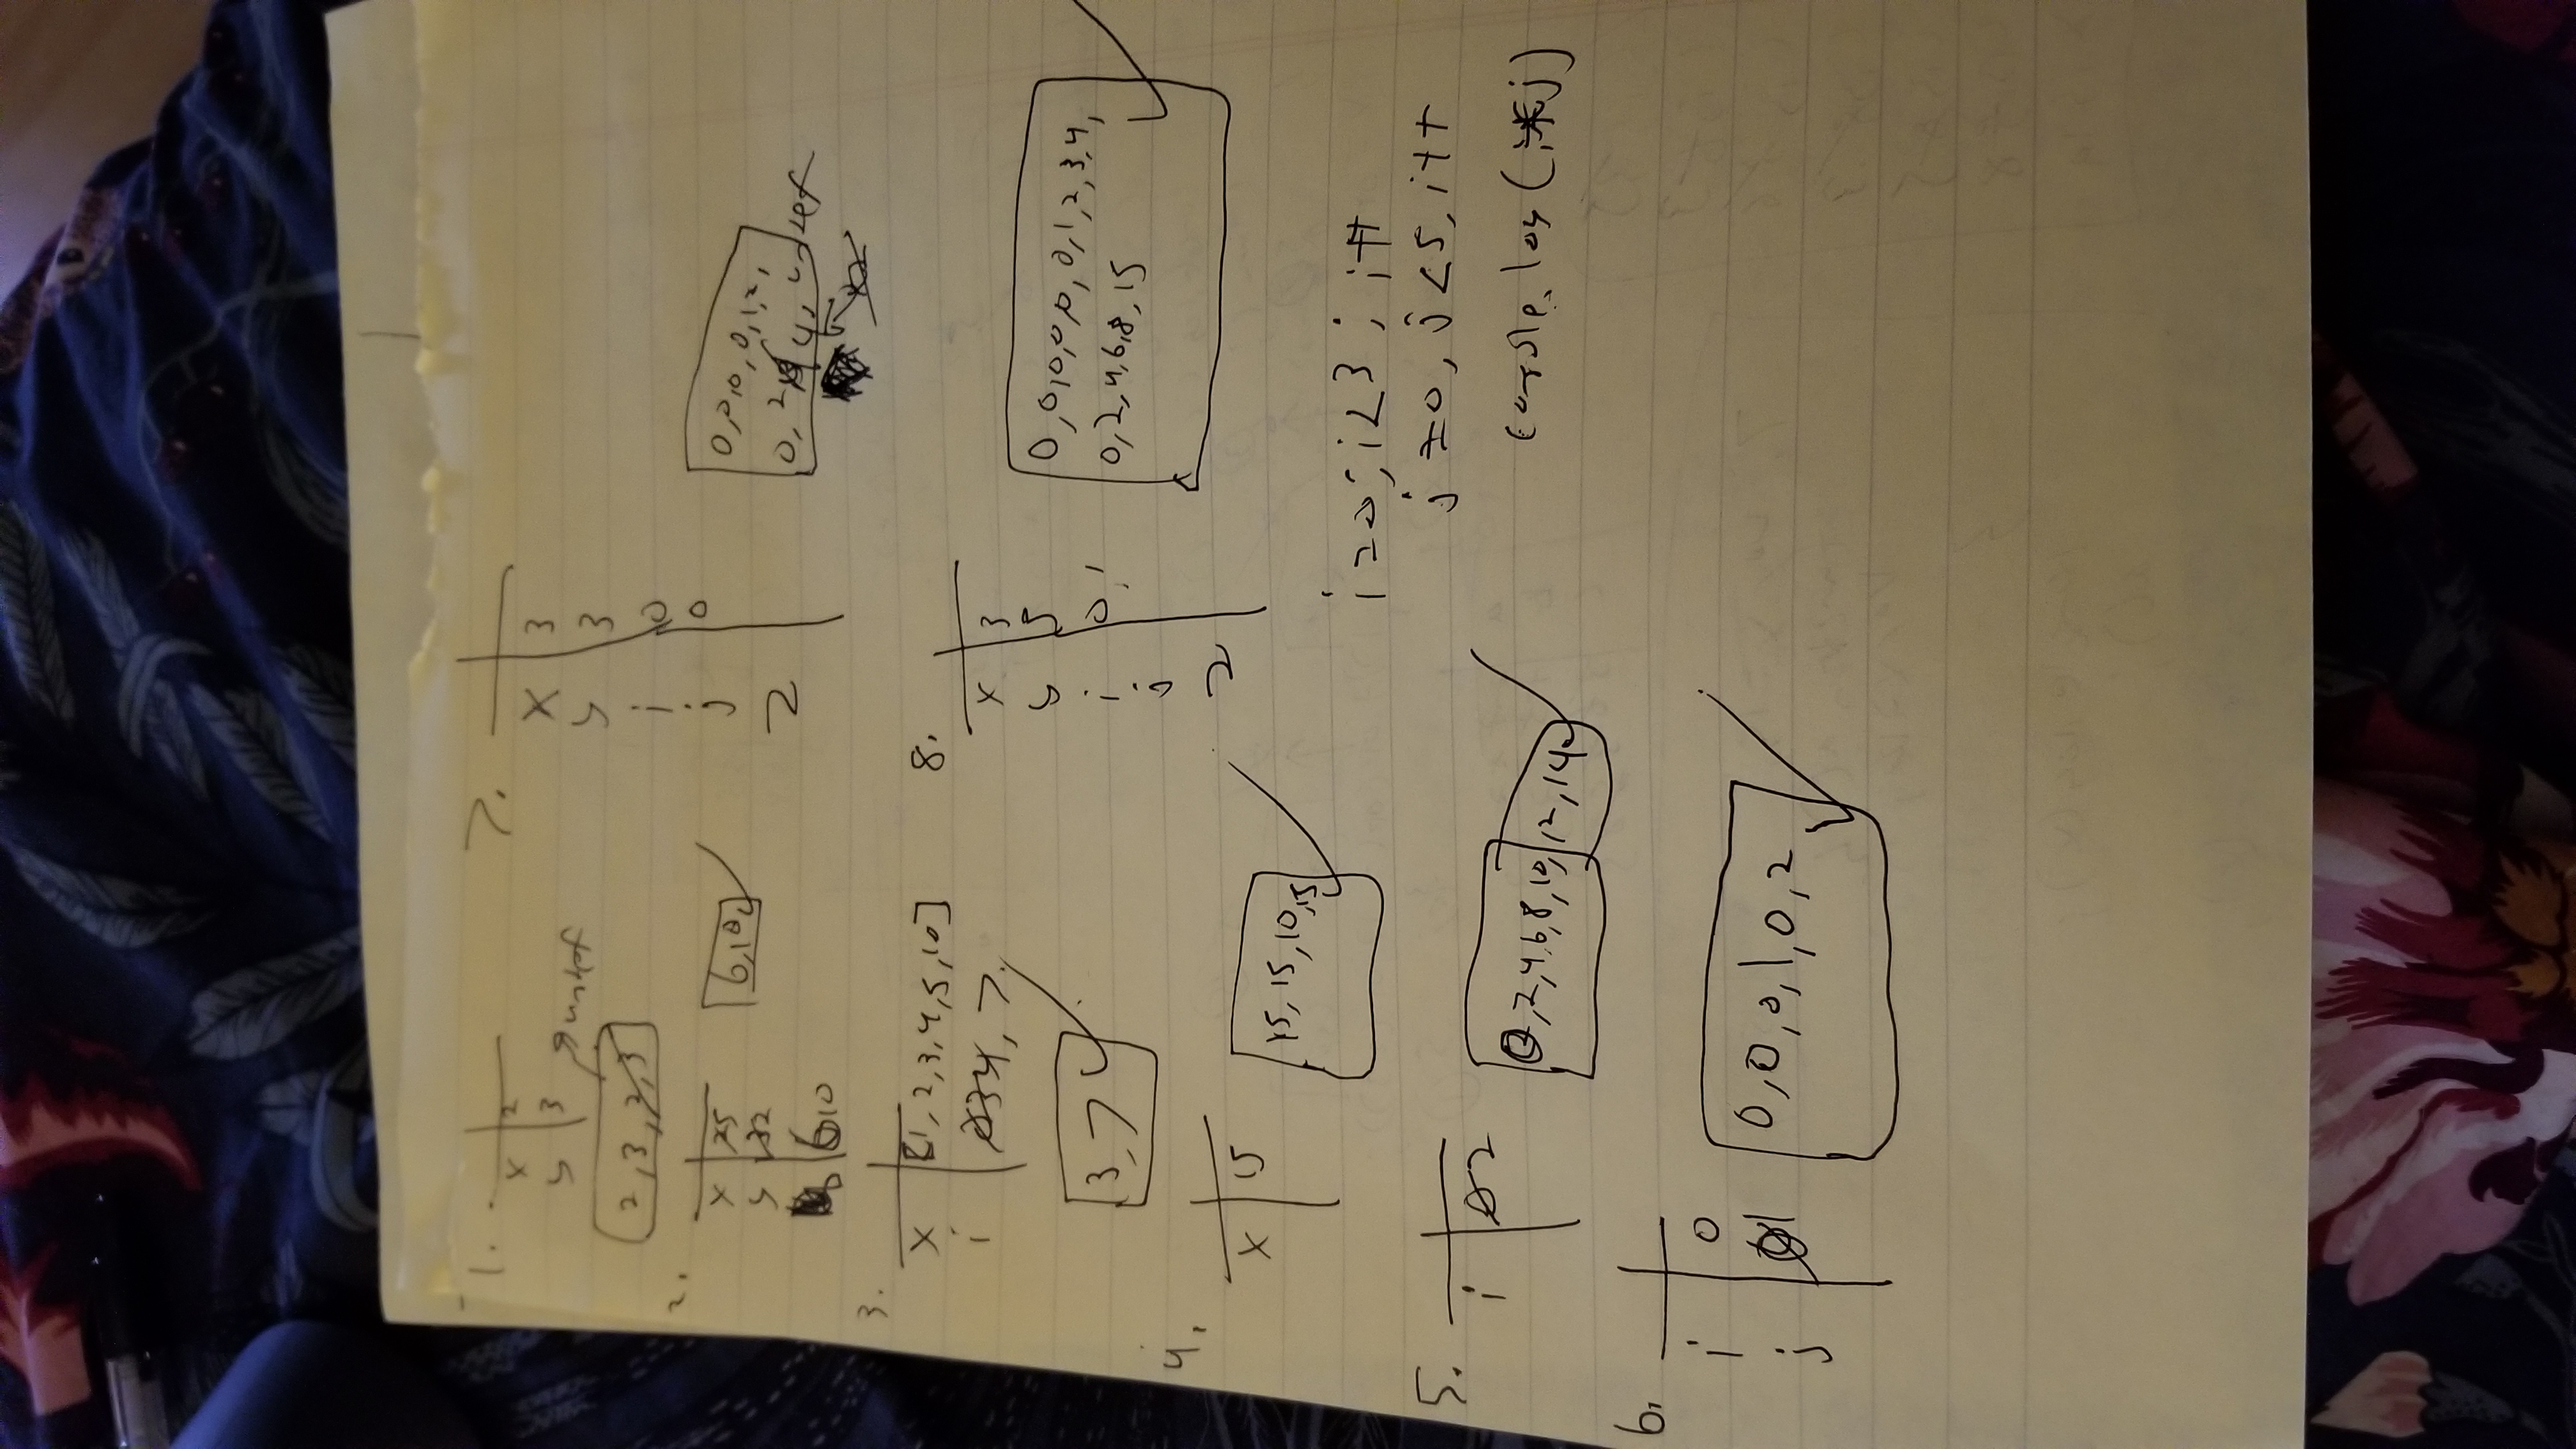 1.
x 2
y 3
undef
2, 3, 2, 3
2.
x 25
y 32
b 6 10
6, 10
3.
x [1, 2, 3, 4, 5, 10]
i 0 3 4, 7
3, 7
4.
x 15
15, 15, 10, 15
5.
i 0 2
0, 2, 4, 6, 8, 10, 12, 14
6.
i 0
j 0 1
0, 0, 0, 1, 0, 2
7.
x 3
y 3
i 0
j 0
z
0, 0, 0, 0, 1, 2,
0, 2, 4, undef
8.
x 3
y 5
i 0, 1
j
z
0, 0, 0, 0, 0, 0, 1, 2, 3, 4,
0, 2, 4, 6, 8, 15
i=0; i<3; i++
j=0, j<5, i++
console.log(i*j)